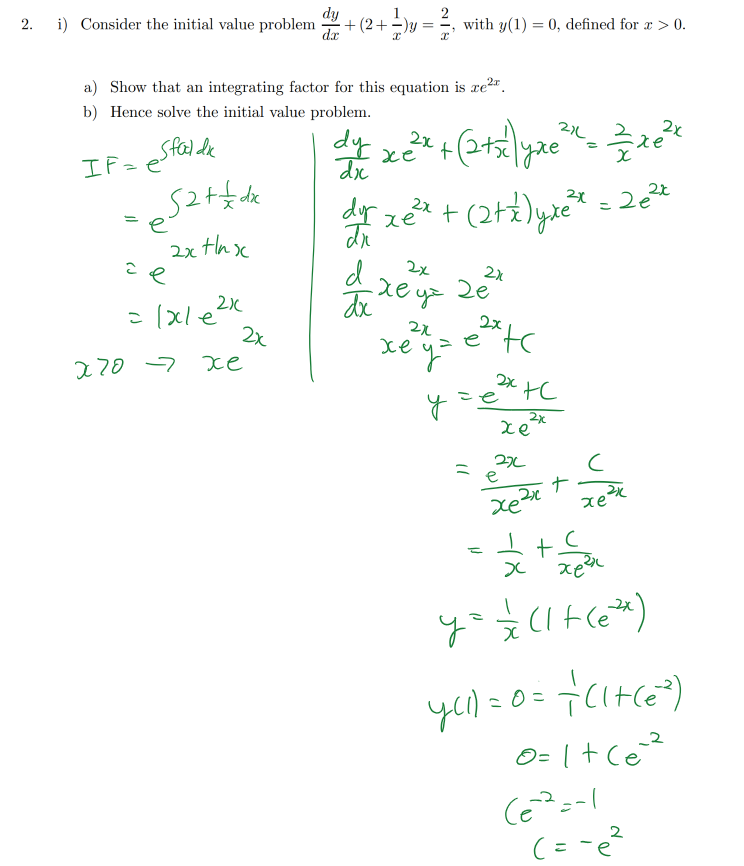 2. i) Consider the initial value problem dy/dx + (2 + 1/x)y = 2/x, with y(1) = 0, defined for x > 0.
a) Show that an integrating factor for this equation is xe^{2x}.
b) Hence solve the initial value problem.
IF = e^{∫f(x) dx}
= e^{∫2 + 1/x dx}
= e^{2x + ln x}
= |x| e^{2x}
x > 0 → xe^{2x}
dy/dx xe^{2x} + (2 + 1/x) yxe^{2x} = 2/x xe^{2x}
dy/dx xe^{2x} + (2 + 1/x) yxe^{2x} = 2e^{2x}
d/dx xe^{2x} y = 2e^{2x}
xe^{2x} y = e^{2x} + C
y = (e^{2x} + C)/(xe^{2x})
= e^{2x}/(xe^{2x}) + C/(xe^{2x})
= 1/x + C/(xe^{2x})
y = 1/x (1 + Ce^{-2x})
y(1) = 0 = 1/1 (1 + Ce^{-2})
0 = 1 + Ce^{-2}
Ce^{-2} = -1
C = -e^{2}